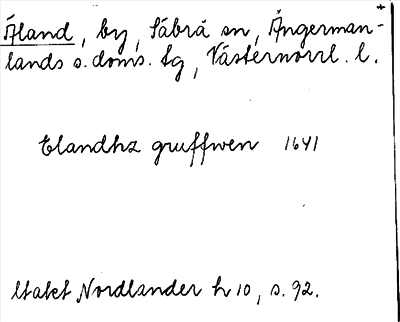 Åland, by, Säbrå sn, Ångerman-
lands s. doms. tg, Västernorrl. l.
Elandhz gruffwen 1641
Utakt Nordlander h 10, s. 92.